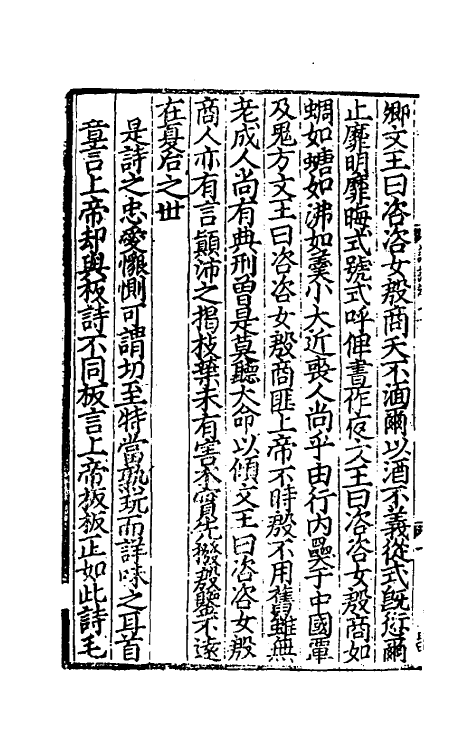 卿文王曰咨咨女殷商天不湎爾以酒不義從式既愆爾
止靡明靡晦式號式呼俾晝作夜文王曰咨咨女殷商如
蜩如螗如沸如羹小大近喪人尚乎由行內奰于中國覃
及鬼方文王曰咨咨女殷商匪上帝不時殷不用舊雖無
老成人尚有典刑曾是莫聽大命以傾文王曰咨咨女殷
商人亦有言顛沛之揭枝葉未有害本實先撥殷鑒不遠
在夏后之世
是詩之忠愛懷惻可謂切至特當熟玩而詳味之耳首
章言上帝却與板詩不同板言上帝板板正如此詩毛